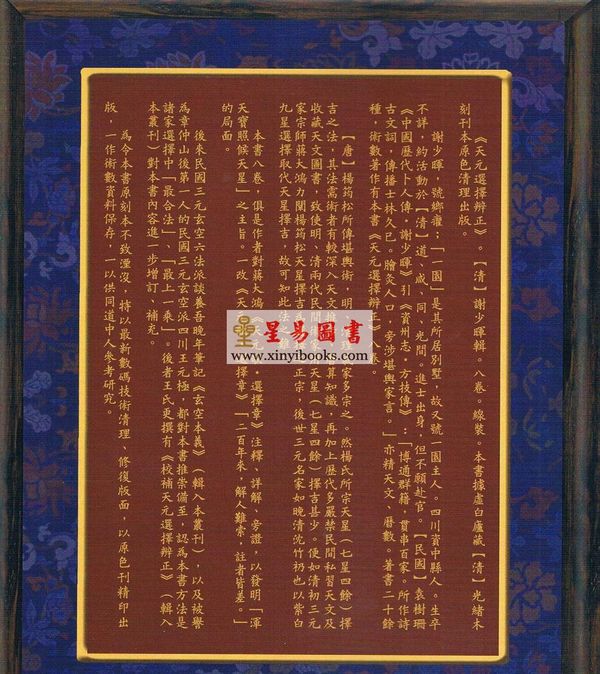 《天元選擇辨正》。【清】謝少暉輯。八卷。線裝。本書據虛白廬藏【清】光緒木
刻刊本原色清理出版。
謝少暉，號鄉癯；「一園」是其所居別墅，故又號一園主人。四川資中縣人。生卒
不詳，約活動於【清】道、咸、同、光間。進士出身，但不願赴官。【民國】袁樹珊
《中國歷代卜人傳．謝少暉》引《資州志．方技傳》：「博通群籍，貫串百家。所作詩
古文詞，傳播士林久已。膾炙人口，旁涉堪輿家言。」亦精天文、曆數。著書二十餘
種，術數著作有本書《天元選擇辨正》
【唐】楊筠松所傳堪輿術，明、清
家多宗之。然楊氏所宗天星（七星四餘）擇
吉之法，其法需術者有較深入天文
算知識，再加上歷代多嚴禁民間私習天文及
收藏天文圖書，致使明、清兩代民間
天星（七星四餘）擇吉甚少。便如清初三元
家宗師蔣大鴻力闡楊筠松天星擇吉為
正宗，後世三元名家如晚清沈竹礽也以紫白
九星選擇取代天星擇吉，故可知此法之難
本書八卷，俱是作者對蔣大鴻《天元
選擇章》注釋、詳解、旁證，以發明「渾
天寶照候天星」之主旨。一改《天
擇章》「二百年來，解人難索，註者皆差。」
的局面。
後來民國三元玄空六法派談養吾晚年筆記《玄空本義》（輯入本叢刊），以及被譽
為章仲山後第一人的民國三元玄空派四川王元極，都對本書推崇備至，認為本書方法是
諸家選擇中「最合法」、「最上一乘」。後者王氏更撰有《校補天元選擇辨正》（輯入
本叢刊）對本書內容進一步增訂、補充。
為令本書原刻本不致湮沒，特以最新數碼技術清理、修復版面，以原色刊精印出
版，一作術數資料保存，一以供同道中人參考研究。
星易圖書
www.xinyibooks.com